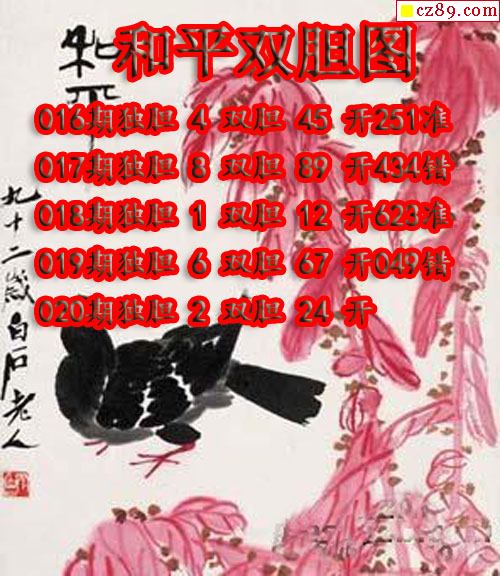 cz89.com
和平双胆图
和平
016期独胆 4 双胆 45 开251准
017期独胆 8 双胆 89 开434错
018期独胆 1 双胆 12 开623准
019期独胆 6 双胆 67 开049错
020期独胆 2 双胆 24 开
九十二岁白石老人